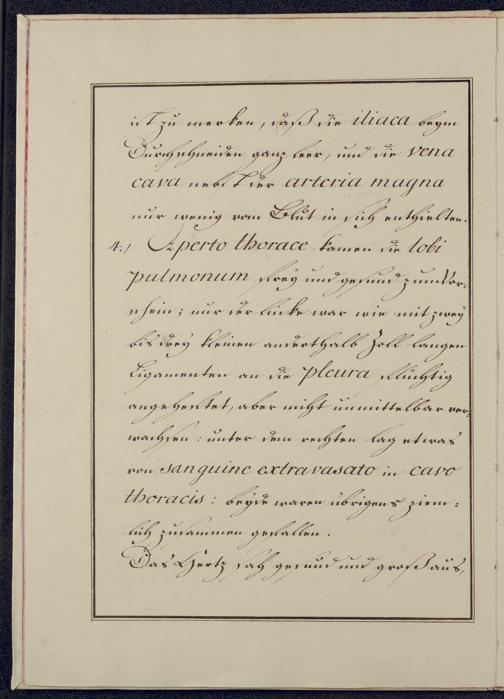 ist zu merken, daß die iliaca beÿm
Durchschneiden ganz leer, und die vena
cava nebst der arteria magna
nur wenig vom Blut in sich enthielten.
4.) Aperto thorace kamen die lobi
pulmonum freÿ und gesund zum Vor-
schein; nur der lincke war wie mit zweÿ
bis dreÿ kleinen anderthalb Zoll langen
Ligamenten an die pleura flüchtig
angeheftet, aber nicht unmittelbar ver-
wachsen: unter dem rechten lag etwas
von sanguine extravasato in cavo
thoracis: beÿde waren übrigens ziem-
lich zusammen gefallen.
Das Hertz sah gesund und groß aus,